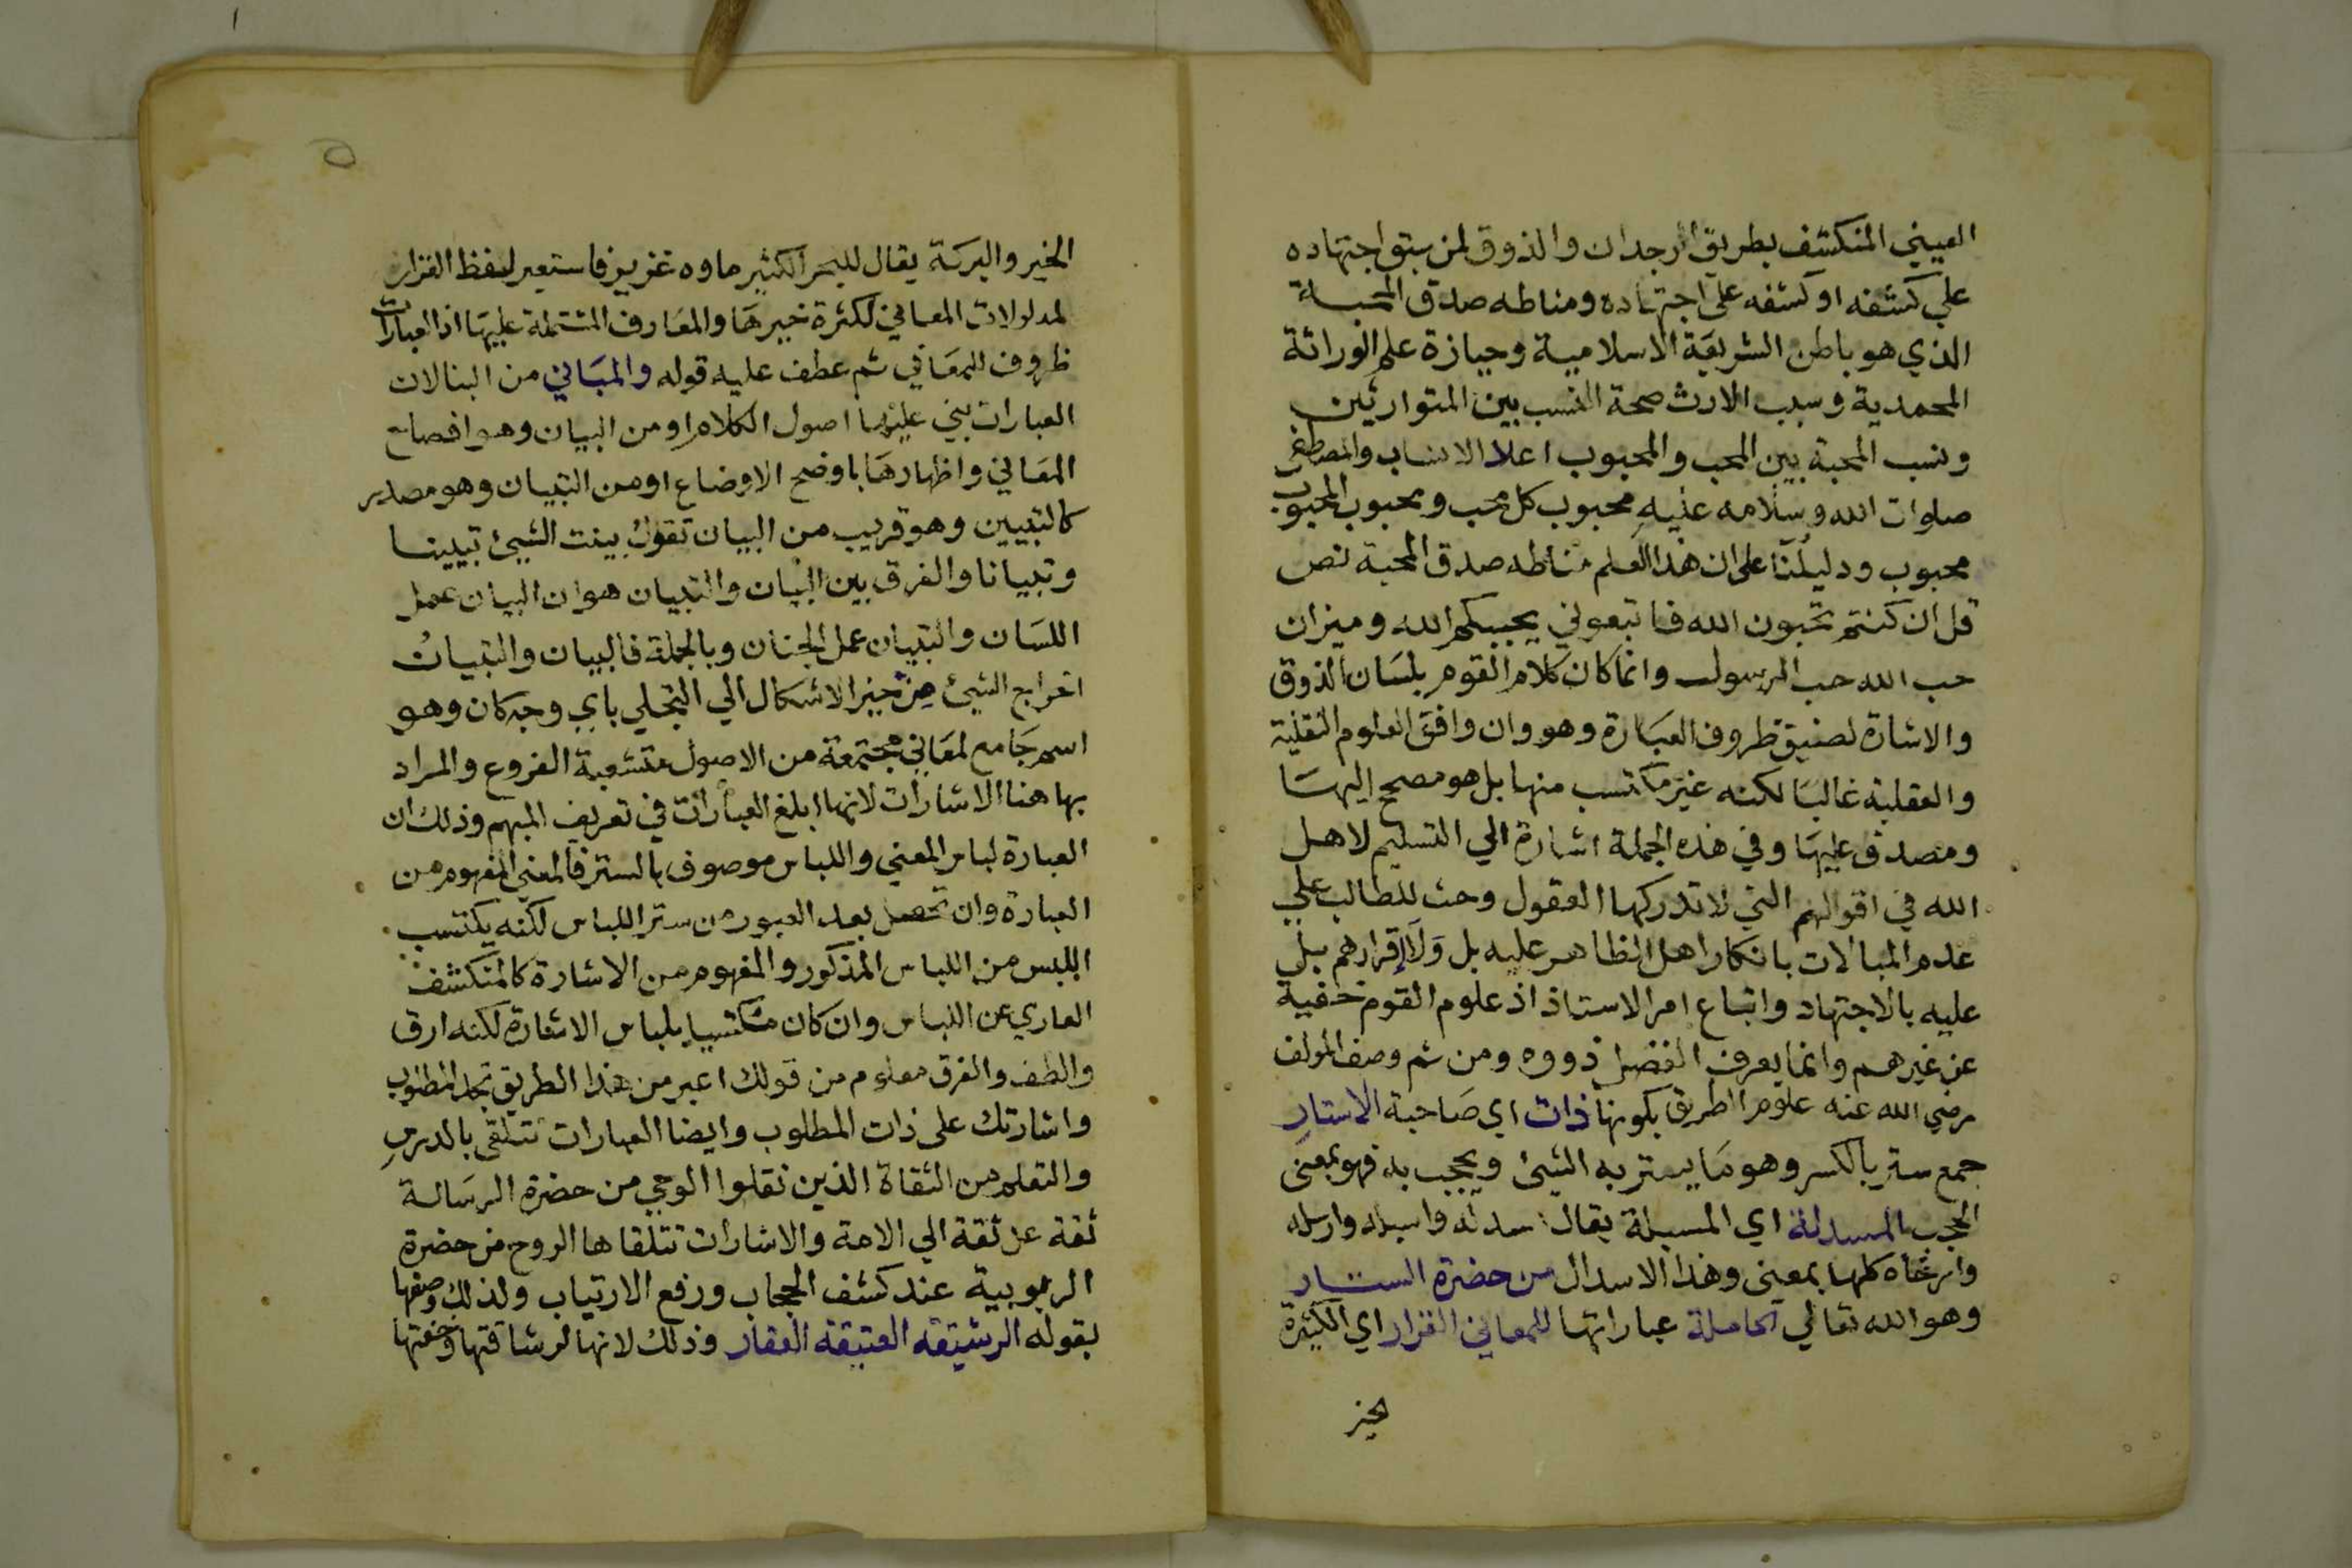 العيني المنكشف بطريق الوجدان والذوق لمن سبق اجتهاده
علي كشفه او كشفه علي اجتهاده ومناطه صدق المحبة
الذي هو باطن الشريعة الاسلامية وحيازة علم الوراثة
المحمدية وسبب الارث صحة النسب بين المتوارثين
ونسب المحبة بين المحب والمحبوب اعلا الانساب والمصطفي
صلوات الله وسلامه عليه محبوب كل محب ومحبوب المحبوب
محبوب ودليلنا علي ان هذا العلم مناطه صدق المحبة نص
قل ان كنتم تحبون الله فاتبعوني يحببكم الله وميزان
حب الله حب الرسول وانما كان كلام القوم بلسان الذوق
والاشارة لضيق ظروف العبارة وهو وان وافق العلوم النقلية
والعقلية غالبا لكنه غير مكتسب منها بل هو مصحح اليها
ومصدق عليها وفي هذه الجملة اشارة الي التسليم لاهل
الله في اقوالهم التي لا تدركها العقول وحث للطالب علي
عدم المبالات بانكار اهل الظاهر عليه بل ولا إقرارهم بل
عليه بالاجتهاد واتباع امر الاستاذ اذ علوم القوم خفية
عن غيرهم وانما يعرف الفضل ذووه ومن ثم وصف المولف
رضي الله عنه علوم الطريق بكونها ذات اي صاحبة الاستار
جمع ستر بالكسر وهو ما يستر به الشيئ ويحجب به فهو بمعنى
الحجب المسدلة اي المسبلة يقال اسدله واسبله وارسله
وارخاه كلها بمعنى وهذا الاسدال من حضرة الستار
وهو الله تعالي الحاملة عباراتها للمعاني الغزار اي الكثيرة
الخير
الخير والبركة يقال للبحر الكثير ماوه غزير فاستعير لفظ الغزار
لمدلولات المعاني لكثرة خيرها والمعارف المشتملة عليها اذ العبارات
ظروف للمعاني ثم عطف عليه قوله والمباني من البنا لان
العبارات بني عليها اصول الكلام او من البيان وهو افصاح
المعاني واظهارها باوضح الاوضاع او من التبيان وهو مصدر
كالتبيين وهو قريب من البيان تقول بينت الشيئ تبيينا
وتبيانا والفرق بين البيان والتبيان هو ان البيان عمل
اللسان والتبيان عمل الجنان وبالجملة فالبيان والتبيان
اخراج الشيئ من حيز الاشكال الي التجلي باي وجه كان وهو
اسم جامع لمعاني مجتمعة من الاصول متشعبة الفروع والمراد
بها هنا الاشارات لانها ابلغ العبارات في تعريف المبهم وذلك ان
العبارة لباس المعني واللباس موصوف بالستر فالمعني المفهوم من
العبارة وان تحصل بعد العبور من ستر اللباس لكنه يكتسب
اللبس من اللباس المذكور والمفهوم من الاشارة كالمنكشف
العاري عن اللباس وان كان مكتسيا بلباس الاشارة لكنه ارق
والطف والفرق معلوم من قولك اعبر من هذا الطريق تجد المطلوب
واشارتك على ذات المطلوب وايضا العبارات تتلقى بالدرس
والتعلم من الثقاة الذين نقلوا الوحي من حضرة الرسالة
ثقة عن ثقة الي الامة والاشارات تتلقاها الروح من حضرة
الربوبية عند كشف الحجاب ورفع الارتياب ولذلك وصفها
بقوله الرشيقة العتيقة العقار وذلك لانها لرشاقتها وخفتها